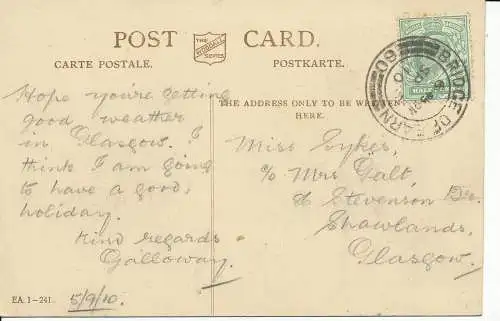 POST CARD.
THE WOODALL SERIES
CARTE POSTALE.
POSTKARTE.
THE ADDRESS ONLY TO BE WRITTEN
HERE.
BRIDGE OF EARN
HALF
Hope you're getting
good weather
in Glasgow. I
think I am going
to have a good
holiday.
Kind regards
Galloway.
5/9/10.
Miss Sykes,
c/o Mrs Galt,
Stevenson Dr.
Shawlands,
Glasgow.
EA. 1-241.